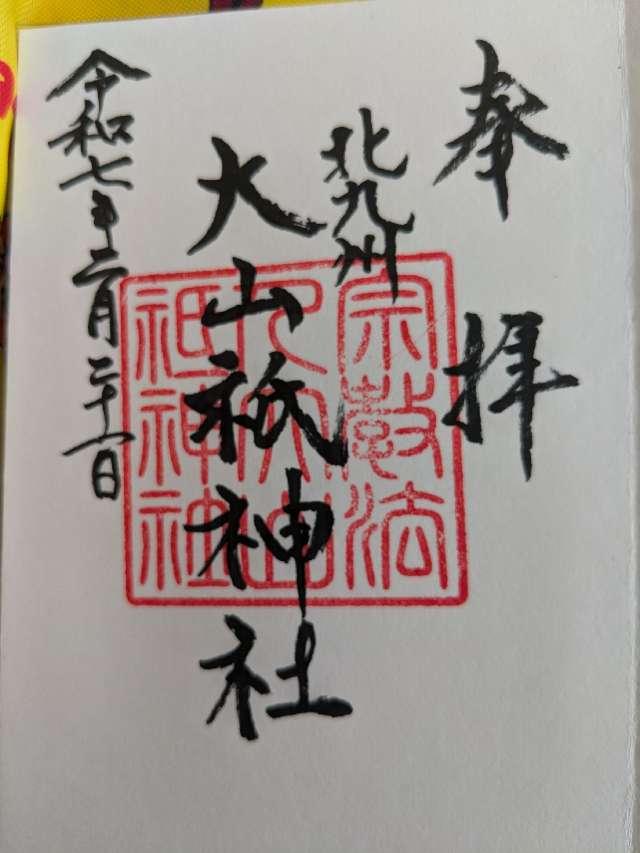 奉拝
北九州
大山祇神社
令和七年二月二十一日
宗教法
人大山
祇神社